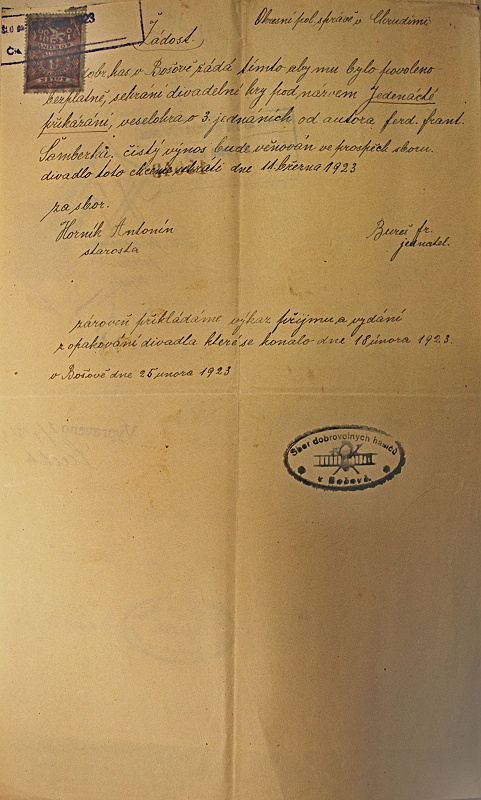 Okresní pol. správě v Chrudimi
Žádost.
dobr. has v Bošově žádá tímto aby mu bylo povoleno
bezplatně, sehrání divadelné hry pod názvem Jedenácté
přikázání, veselohra o 3. jednáních od autora ferd. frant.
Šamberka, čistý výnos bude věnován ve prospěch sboru
divadlo toto chceme sehráti dne 11. března 1923
za sbor.
Horník Antonín
starosta
Bureš fr.
jednatel.
zároveň přikládáme výkaz příjmu a vydání
z opakování divadla které se konalo dne 18 února 1923.
v Bošově dne 25 února 1923
Sbor dobrovolných hasičů
v Bošově.